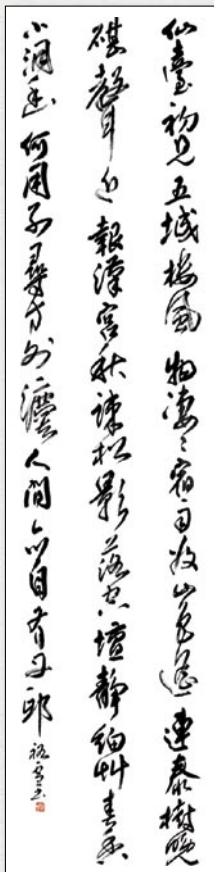 仙臺初見五城樓風物淒〻宿雨收山色遥連秦樹晚
碪聲近報漢宮秋疎松影落空壇靜細艸春香
小洞幽何用別尋方外去人間亦自有丹邱